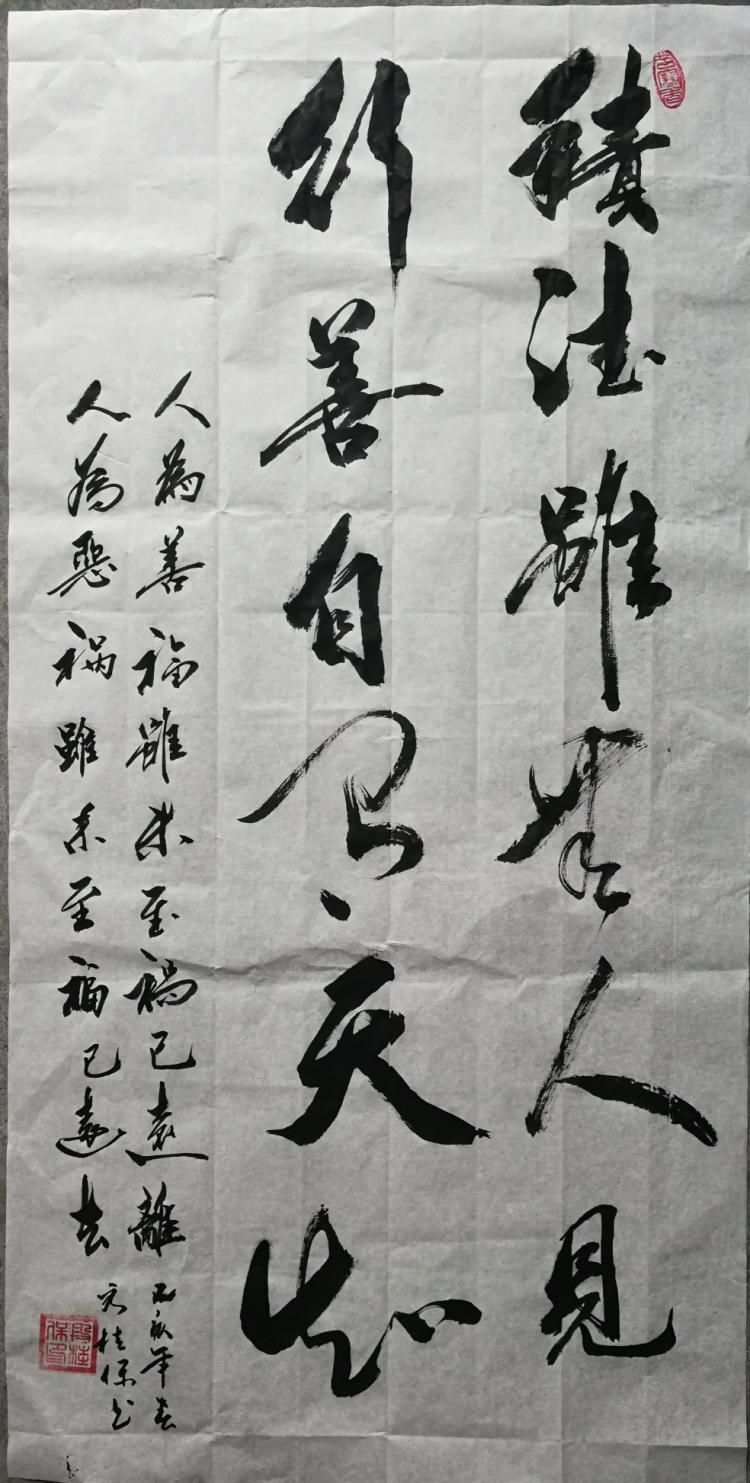 積德雖無人見
行善自有天知
人為善福雖未至禍已遠離
人為惡祸雖未至福已遠去
年春
桂保书
殷桂保印